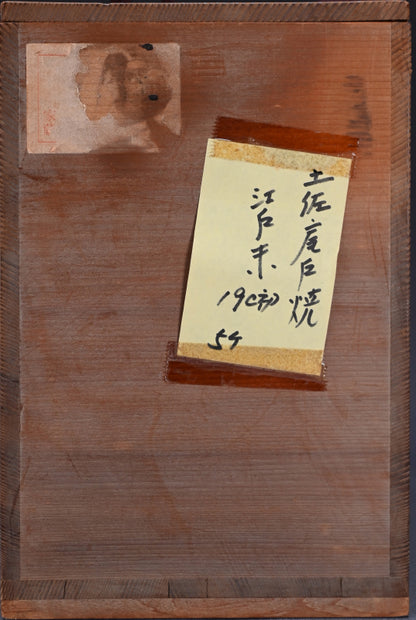 土佐尾戸焼
江戸末
19C初